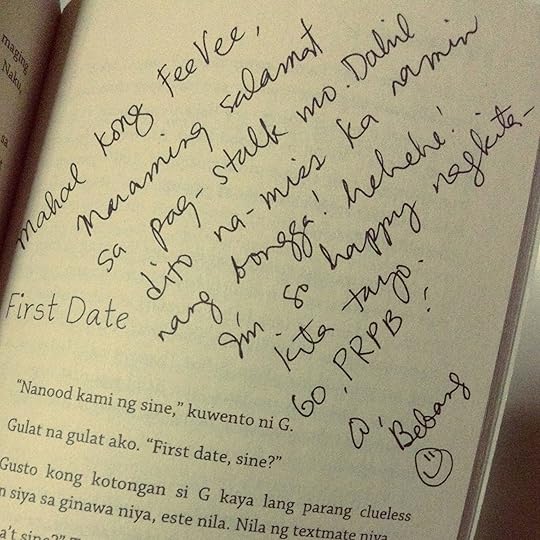 maging
Naku,
sa
mahal kong FeeVee,
Maraming salamat
sa pag-stalk mo. Dahil
dito na-miss ka namin
nang bongga! hehehe!
I'm so happy nagkita-
kita tayo.
Go, PRPB!
Bebang
First Date
“Nanood kami ng sine,” kuwento ni G.
Gulat na gulat ako. “First date, sine?”
Gusto kong kotongan si G kaya lang parang clueless
siya sa ginawa niya, este nila. Nila ng textmate niya